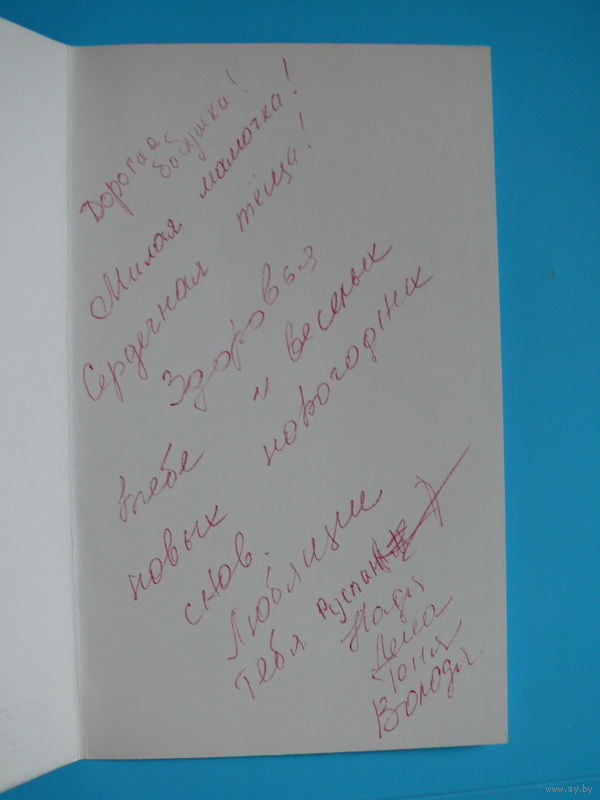 Дорогая
бабушка!
Милая мамочка!
Сердечная тёща!
Здоровья
тебе и веселых
новых новогодних
снов.
Любящие
Тебя Руслан
Надя
Лена
Тоня
Володя.
www.ay.by